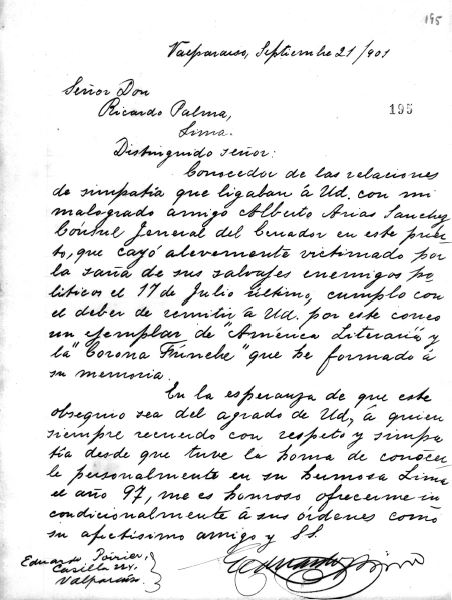 195
Valparaiso, Septiembre 21/901
Señor Don
Ricardo Palma,
195
Lima.
Distinguido señor:
Conocedor de las relaciones
de simpatía que ligaban á Ud. con mi
malogrado amigo Alberto Arias Sanchez
Cónsul General del Ecuador en este puer-
to, que cayó alevemente victimado por
la saña de sus salvajes enemigos po
líticos el 17 de Julio último, cumplo con
el deber de remitir á Ud. por este correo
un ejemplar de "América Literaria" y
la "Corona Fúnebre" que he formado á
su memoria.
En la esperanza de que este
obsequio sea del agrado de Ud, á quien
siempre recuerdo con respeto y simpa
tía desde que tuve la honra de conocer
le personalmente en su hermosa Lima
el año 97, me es honroso ofrecerme in
condicionalmente á sus órdenes como
su afectísimo amigo y SS.
Eduardo Poirier
Eduardo Poirier,
Casilla
Valparaíso.